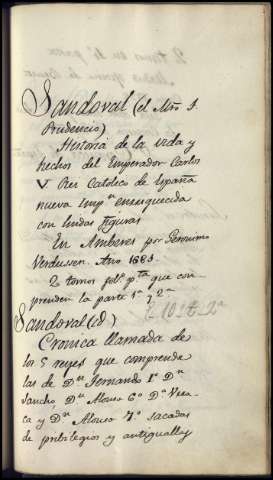 Sandoval (el Mro. F.
Prudencio)
Historia de la vida y
hechos del Emperador Carlos
V Rey Catolico de España
nueva Impon. enrequecida
con lindas figuras
En Amberes por Geronimo
Verdussen. Año 1681.
2 tomos fol. pta. que con-
prenden la parte 1a. y 2a.
Sandoval (id)
Cronica llamada de
los 5 reyes que comprende
las de Dn. Fernando 1o. Dn.
Sancho, Dn. Alonso 6o. Da. Urra-
ca y Dn. Alonso 7o. sacadas
de pribilegios y antiguallas